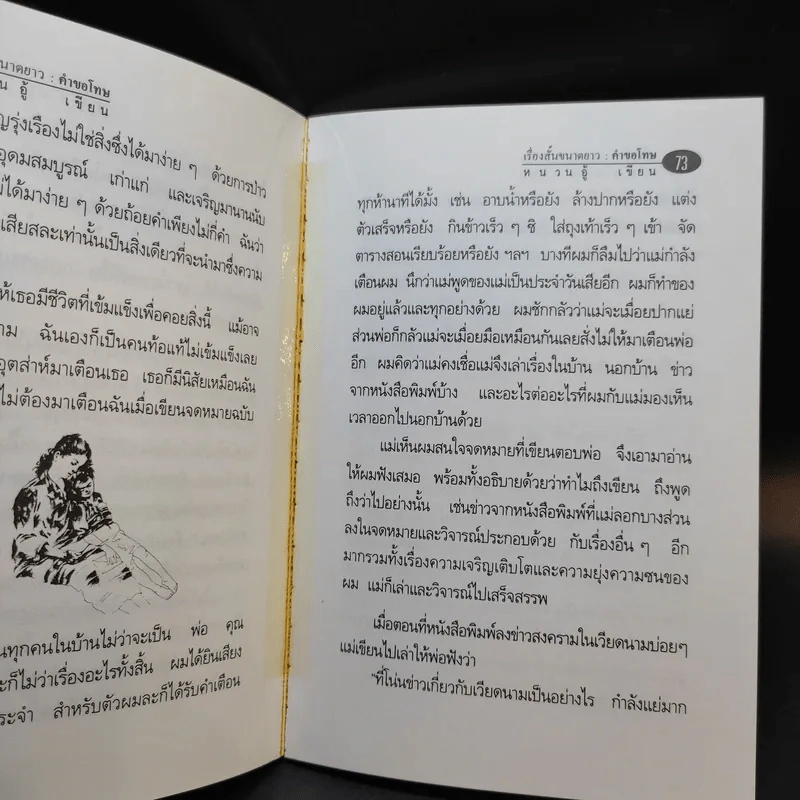 นาดยาว : คำขอโทษ
น อู้ เขียน
รุ่งเรืองไม่ใช่สิ่งซึ่งได้มาง่าย ๆ ด้วยการป่าว
อุดมสมบูรณ์ เก่าแก่ และเจริญมานานนับ
ม่ได้มาง่าย ๆ ด้วยถ้อยคำเพียงไม่กี่คำ ฉันว่า
เสียสละเท่านั้นเป็นสิ่งเดียวที่จะนำมาซึ่งความ
ห้เธอมีชีวิตที่เข้มแข็งเพื่อคอยสิ่งนี้ แม้อาจ
าม ฉันเองก็เป็นคนท้อแท้ไม่เข้มแข็งเลย
อุตส่าห์มาเตือนเธอ เธอก็มีนิสัยเหมือนฉัน
ไม่ต้องมาเตือนฉันเมื่อเขียนจดหมายฉบับ
นทุกคนในบ้านไม่ว่าจะเป็น พ่อ คุณ
ะก็ไม่ว่าเรื่องอะไรทั้งสิ้น ผมได้ยินเสียง
ระจำ สำหรับตัวผมละก็ได้รับคำเตือน
เรื่องสั้นขนาดยาว : คำขอโทษ 73
หนวนอู้ เขียน
ทุกห้านาทีได้มั้ง เช่น อาบน้ำหรือยัง ล้างปากหรือยัง แต่ง
ตัวเสร็จหรือยัง กินข้าวเร็ว ๆ ซิ ใส่ถุงเท้าเร็ว ๆ เข้า จัด
ตารางสอนเรียบร้อยหรือยัง ฯลฯ บางทีผมก็ลืมไปว่าแม่กำลัง
เตือนผม นึกว่าแม่พูดของแม่เป็นประจำวันเสียอีก ผมก็ทำของ
ผมอยู่แล้วและทุกอย่างด้วย ผมชักกลัวว่าแม่จะเมื่อยปากแย่
ส่วนพ่อก็กลัวแม่จะเมื่อยมือเหมือนกันเลยสั่งไม่ให้มาเตือนพ่อ
อีก ผมคิดว่าแม่คงเชื่อแม่จึงเล่าเรื่องในบ้าน นอกบ้าน ข่าว
จากหนังสือพิมพ์บ้าง และอะไรต่ออะไรที่ผมกับแม่มองเห็น
เวลาออกไปนอกบ้านด้วย
แม่เห็นผมสนใจจดหมายที่เขียนตอบพ่อ จึงเอามาอ่าน
ให้ผมฟังเสมอ พร้อมทั้งอธิบายด้วยว่าทำไมถึงเขียน ถึงพูด
ถึงว่าไปอย่างนั้น เช่นข่าวจากหนังสือพิมพ์ที่แม่ลอกบางส่วน
ลงในจดหมายและวิจารณ์ประกอบด้วย กับเรื่องอื่น ๆ อีก
มากรวมทั้งเรื่องความเจริญเติบโตและความยุ่งความซนของ
ผม แม่ก็เล่าและวิจารณ์ไปเสร็จสรรพ
เมื่อตอนที่หนังสือพิมพ์ลงข่าวสงครามในเวียดนามบ่อยๆ
แม่เขียนไปเล่าให้พ่อฟังว่า
"ที่โน่นข่าวเกี่ยวกับเวียดนามเป็นอย่างไร กำลังแย่มาก